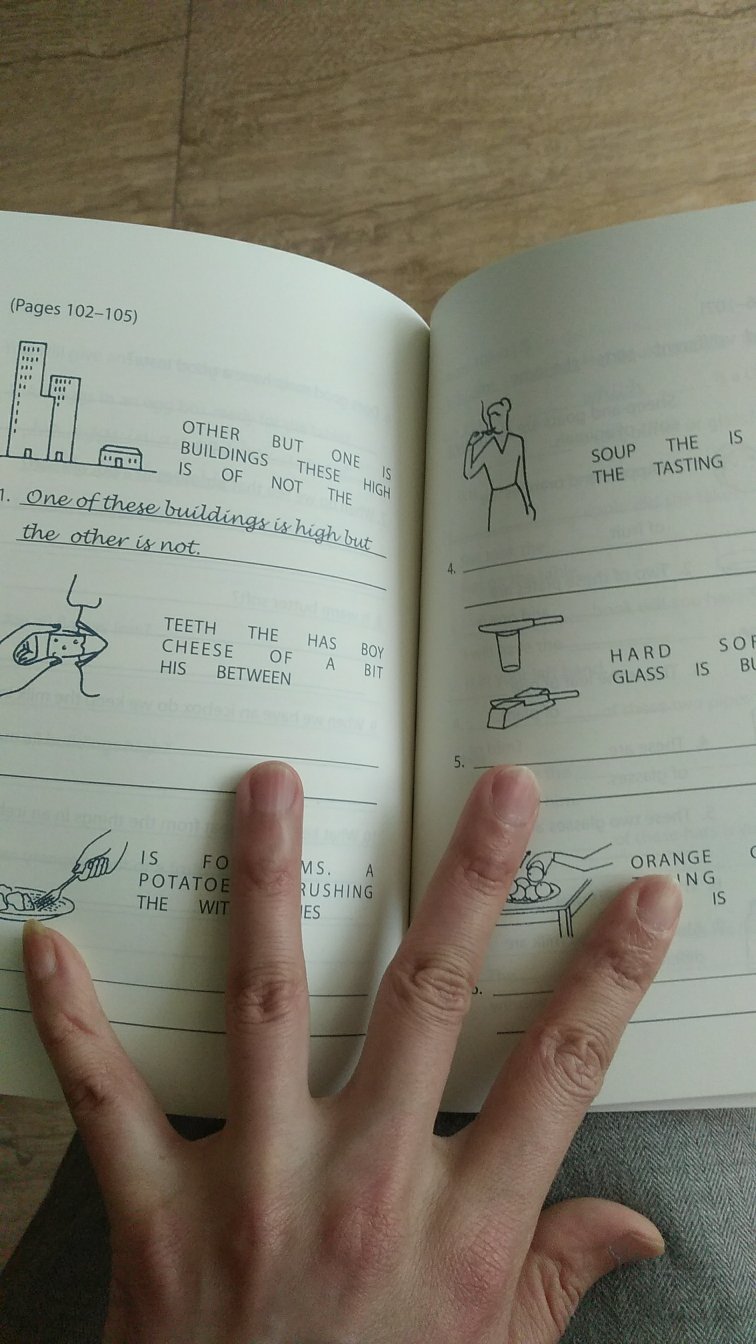 (Pages 102–105)
OTHER BUT ONE IS
BUILDINGS THESE HIGH
IS OF NOT THE
1. One of these buildings is high but
the other is not.
TEETH THE HAS BOY
CHEESE OF A BIT
HIS BETWEEN
IS A
THE
SOUP THE IS
THE TASTING
4.
HARD
GLASS IS
5.
ORANGE
IS